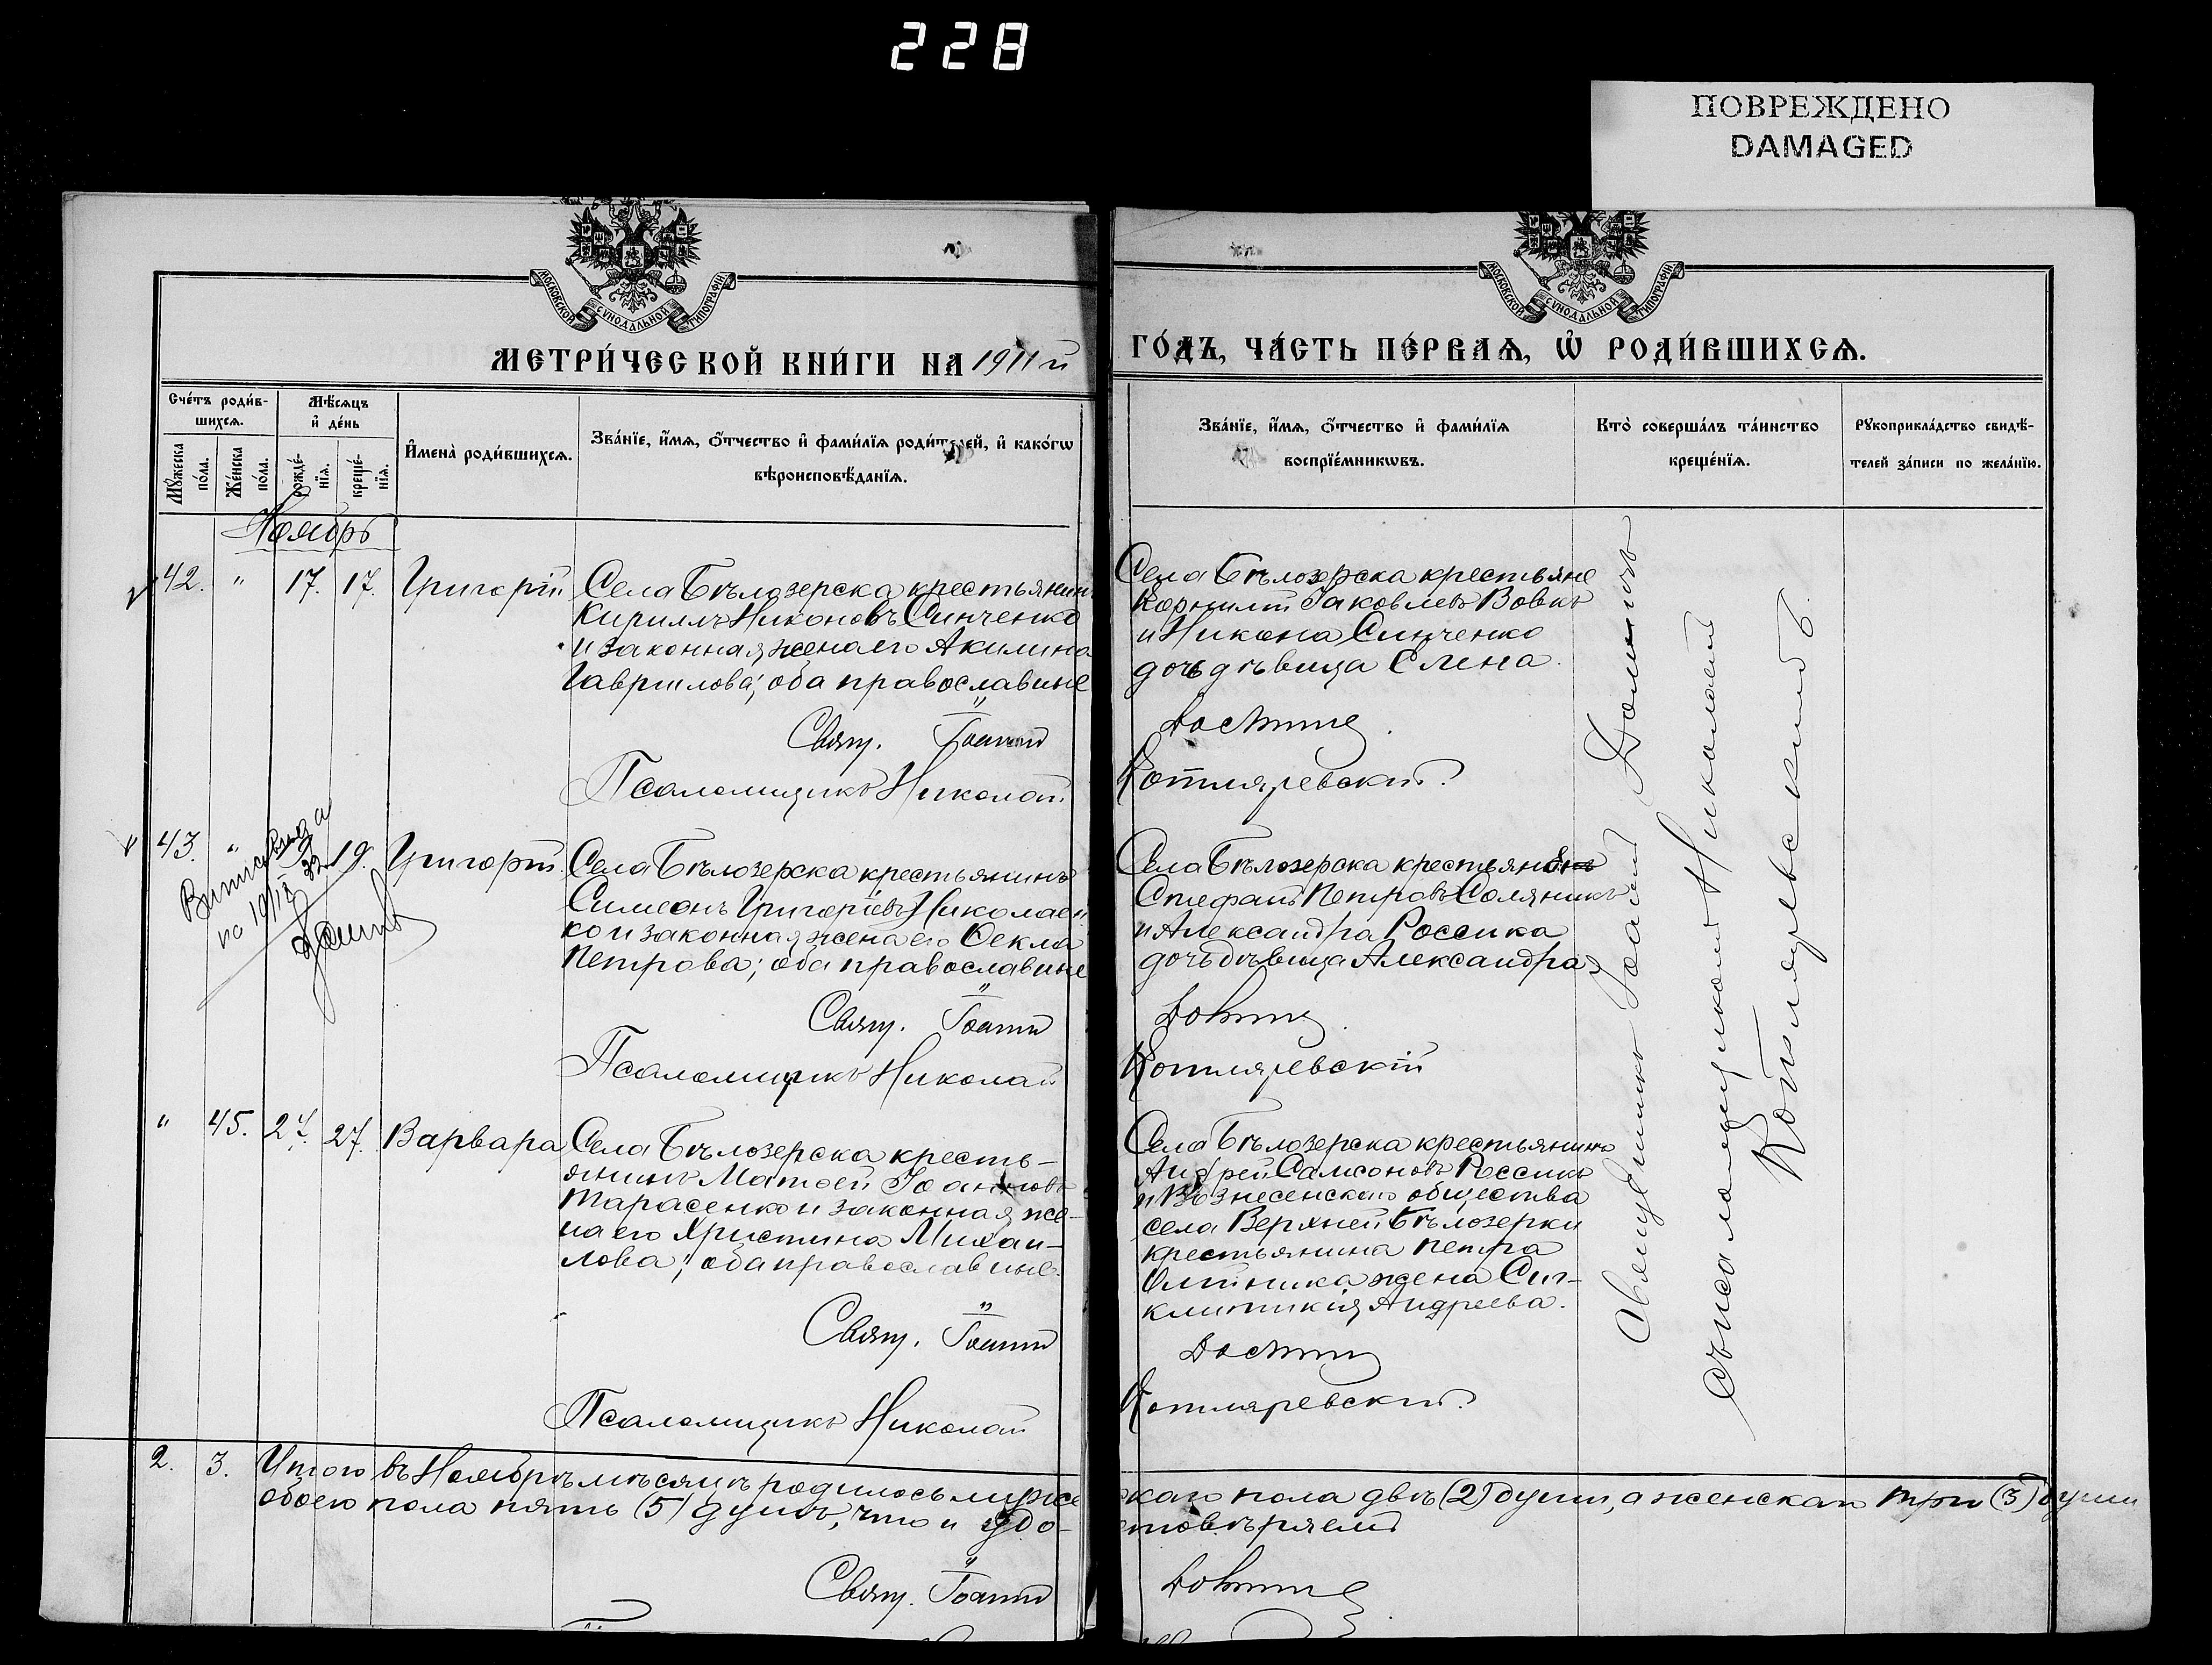 228
ПОВРЕЖДЕНО
DAMAGED
МОСКОВСКОЙ СѴНОДАЛЬНОЙ ТИПОГРАФІИ
МОСКОВСКОЙ СѴНОДАЛЬНОЙ ТИПОГРАФІИ
МЕТРИ́ЧЕСКОЙ КНИ́ГИ НА 1911 й
ГО́ДЪ, ЧА́СТЬ ПЕ́РВАѦ, Ѡ҆ РОДИ́ВШИХСѦ.
Сче́тъ роди́в-
шихсѧ.
Мꙋ́жеска
по́ла.
Же́нска
по́ла.
Мѣ́сѧцъ
и҆ де́нь
рожде́-
нїѧ.
креще́-
нїѧ.
И҆мена̀ роди́вшихсѧ.
Зва́нїе, и҆́мѧ, ѻ҆́тчество и҆ фами́лїѧ роди́телей, и҆ како́гѡ
вѣроисповѣ́данїѧ.
Зва́нїе, и҆́мѧ, ѻ҆́тчество и҆ фами́лїѧ
воспрїе́мникѡвъ.
Кто̀ соверша́лъ та́инство
креще́нїѧ.
Рꙋкоприкла́дство свидѣ́-
телей за́писи по жела́нїю.
Ноябрь
42. " 17. 17. Григорій
Села Бѣлозерска крестьянинъ
Кириллъ Никоновъ Синченко
и законная жена его Акилина
Гавриилова; оба православные
Свящ. Іоаннъ
Псаломщикъ Николай
Села Бѣлозерска крестьяне
Корнилій Іаковлевъ Вовкъ
и Никона Синченко
дочь дѣвица Елена.
Котляревскій.
43. " 19. Григорій
Села Бѣлозерска крестьянинъ
Симеонъ Григоріевъ Николаен
ко и законная жена его Ѳекла
Петрова; оба православные
Свящ. Іоаннъ
Псаломщикъ Николай
Села Бѣлозерска крестьяне
Стефанъ Петровъ Соляникъ
и Александра Россика
дочь дѣвица Александра
Котляревскій
" 45. 27. 27. Варвара
Села Бѣлозерска кресть-
янинъ Матѳей Іоанновъ
Тарасенко и законная же-
на его Христина Михаи-
лова; оба православные.
Свящ. Іоаннъ
Псаломщикъ Николай
Села Бѣлозерска крестьянинъ
Андрей Самсоновъ Россикъ
и Вознесенскаго общества
села Верхней Бѣлозерки
крестьянина Петра
Олійника жена Син-
клитикія Андреева.
Котляревскій.
Священникъ Іоаннъ
съ псаломщикомъ Николаемъ
Котляревскимъ.
2. 3. Итого въ Ноябрѣ мѣсяцѣ родилось муже
скаго пола двѣ (2) души, а женскаго три (3) души
обоего пола пять (5) душъ, что и удо-
стовѣряемъ
Свящ. Іоаннъ